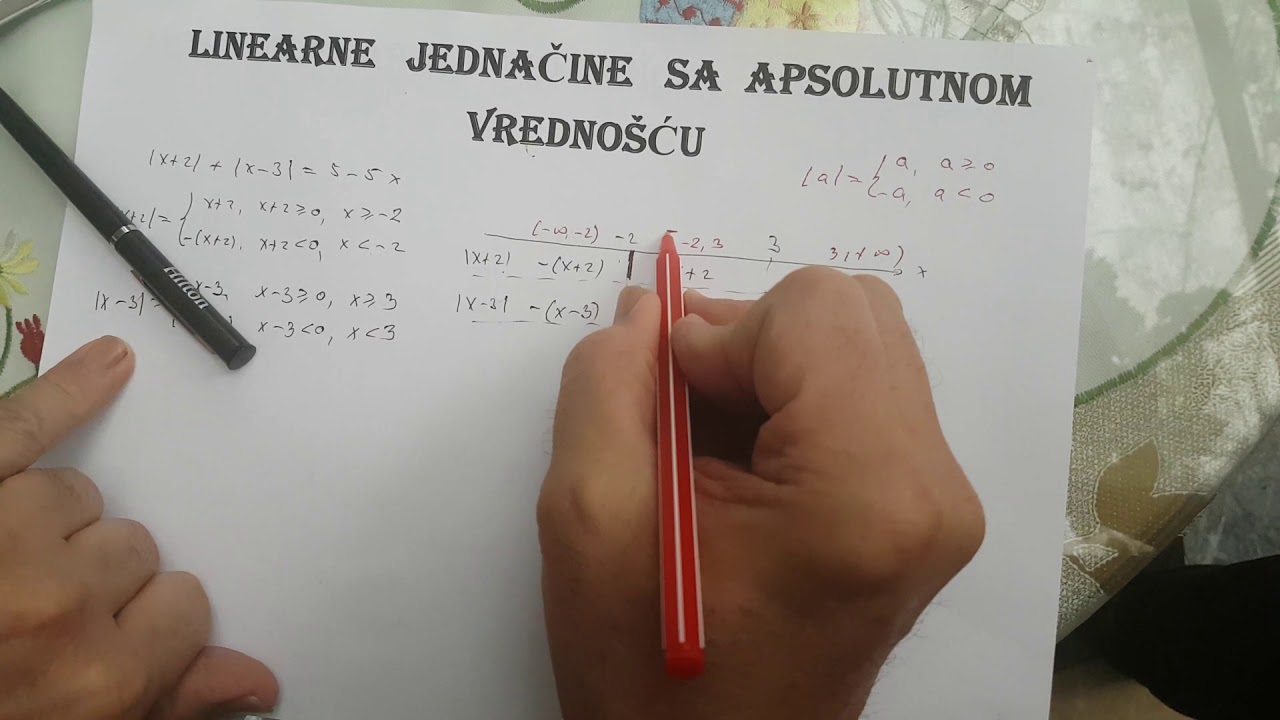 LINEARNE JEDNAČINE SA APSOLUTNOM
VREDNOŠĆU
|x+2| + |x-3| = 5-5x
x+2| = { x+2, x+2≥0, x≥-2
-(x+2), x+2<0, x<-2
|x-3| = x-3, x-3≥0, x≥3
x-3<0, x<3
|a| = { a, a≥0
-a, a<0
(-∞,-2) -2 -2, 3 3 3, +∞)
x
|x+2| -(x+2) +2
|x-3| -(x-3)
Hilton